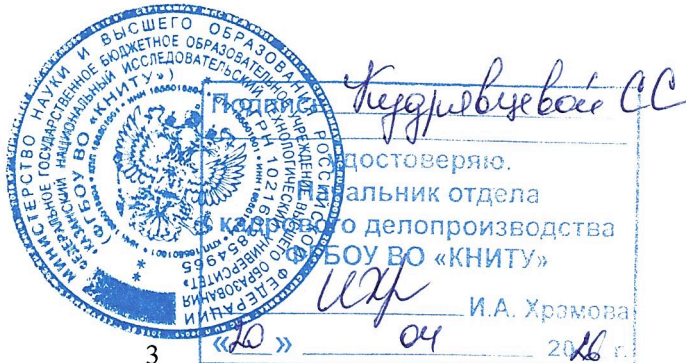 МИНИСТЕРСТВО НАУКИ И ВЫСШЕГО ОБРАЗОВАНИЯ РОССИЙСКОЙ ФЕДЕРАЦИИ
ФЕДЕРАЛЬНОЕ ГОСУДАРСТВЕННОЕ БЮДЖЕТНОЕ ОБРАЗОВАТЕЛЬНОЕ УЧРЕЖДЕНИЕ ВЫСШЕГО ОБРАЗОВАНИЯ
«КАЗАНСКИЙ НАЦИОНАЛЬНЫЙ ИССЛЕДОВАТЕЛЬСКИЙ ТЕХНОЛОГИЧЕСКИЙ УНИВЕРСИТЕТ»
(ФГБОУ ВО «КНИТУ»)
Подпись Кудрявцевой С С
удостоверяю.
Начальник отдела
кадрового делопроизводства
ФГБОУ ВО «КНИТУ»
И.А. Храмова
«20» 04 2026 г.
3